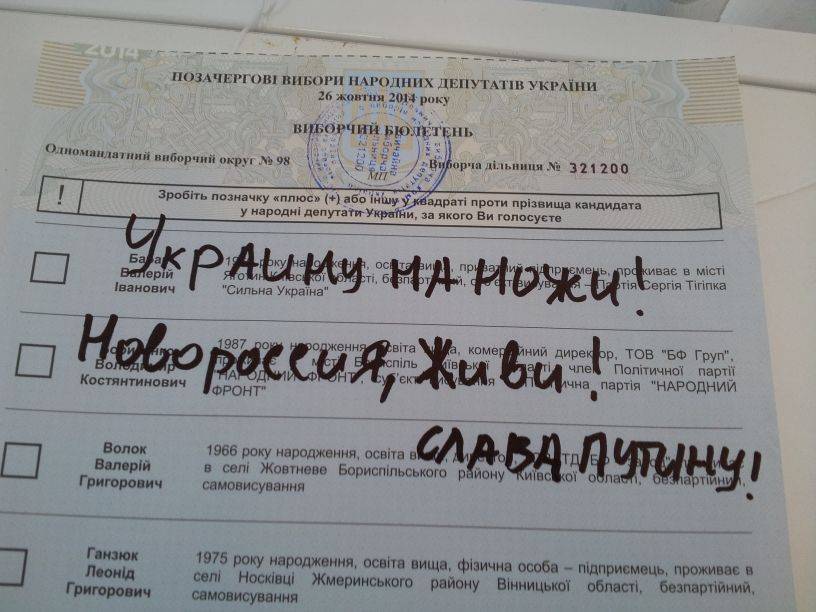 2014
ПОЗАЧЕРГОВІ ВИБОРИ НАРОДНИХ ДЕПУТАТІВ УКРАЇНИ
26 жовтня 2014 року
ВИБОРЧИЙ БЮЛЕТЕНЬ
Одномандатний виборчий округ № 98
МП
Виборча дільниця № 321200
! Зробіть позначку «плюс» (+) або іншу у квадраті проти прізвища кандидата
у народні депутати України, за якого Ви голосуєте
УКРАИНУ НА НОЖИ!
Валерій
Іванович
року народження, освіта вища, приватний підприємець, проживає в місті
області, безпартійний, Партія Сергія Тігіпка
"Сильна Україна"
НОВОРОССИЯ, ЖИВИ!
Володимир
Костянтинович
1987 року народження, освіта вища, комерційний директор, ТОВ "БФ Груп",
місті Бориспіль Київської області, член Політичної партії
"НАРОДНИЙ ФРОНТ", партія "НАРОДНИЙ
ФРОНТ"
СЛАВА ПУТИНУ!
Волок
Валерій
Григорович
1966 року народження, освіта
в селі Жовтневе Бориспільського району Київської області, безпартійний,
самовисування
Ганзюк
Леонід
Григорович
1975 року народження, освіта вища, фізична особа – підприємець, проживає в
селі Носківці Жмеринського району Вінницької області, безпартійний,
самовисування